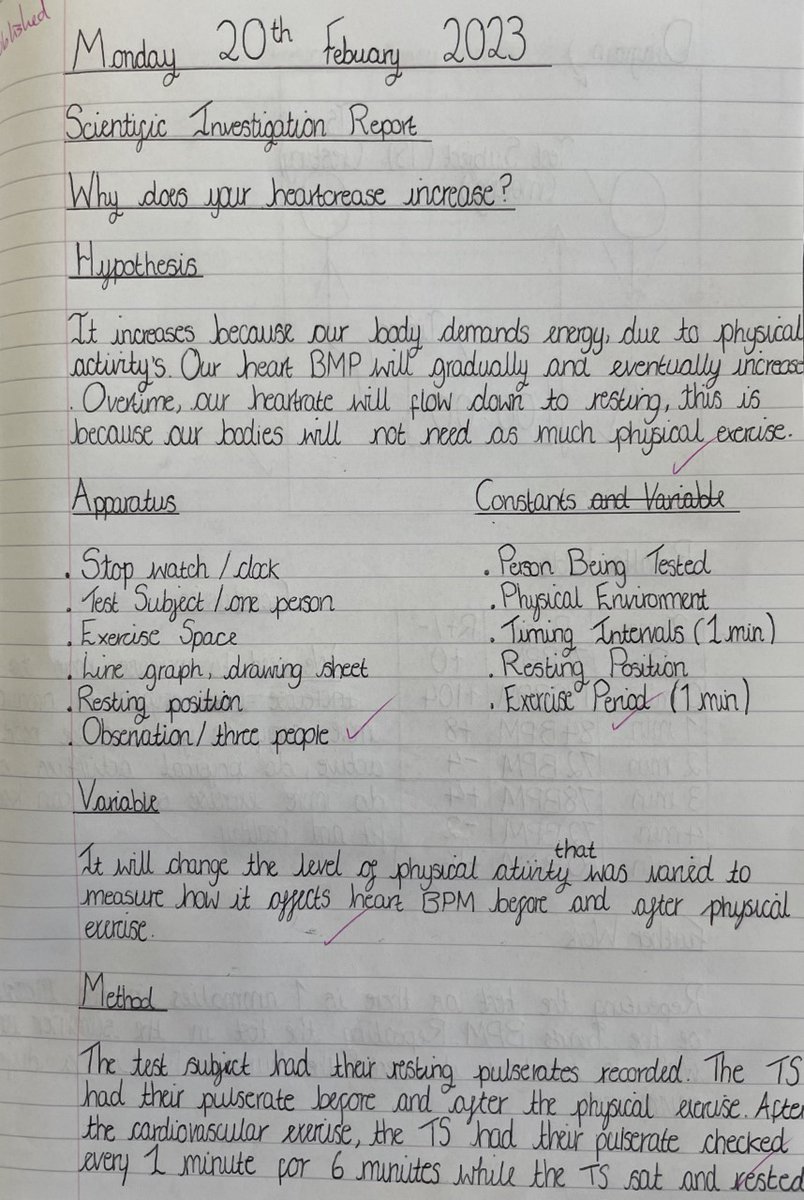 Monday 20th Febuary 2023
Scientific Investigation Report
Why does your heartcrease increase?
Hypothesis
It increases because our body demands energy, due to physical
activity's. Our heart BMP will gradually and eventually increase
. Overtime, our heartrate will flow down to resting, this is
because our bodies will not need as much physical exercise.
Apparatus
. Stop watch / clock
. Test Subject / one person
. Exercise Space
. Line graph, drawing sheet
. Resting position
. Observation / three people
Constants and Variable
. Person Being Tested
. Physical Enviroment
. Timing Intervals (1 min)
. Resting Position
. Exercise Period (1 min)
Variable
It will change the level of physical ativity that was varied to
measure how it affects heart BPM before and after physical
exercise.
Method
The test subject had their resting pulserates recorded. The TS
had their pulserate before and after the physical exercise. After
the cardiovascular exercise, the TS had their pulserate checked
every 1 minute for 6 minutes while the TS sat and rested